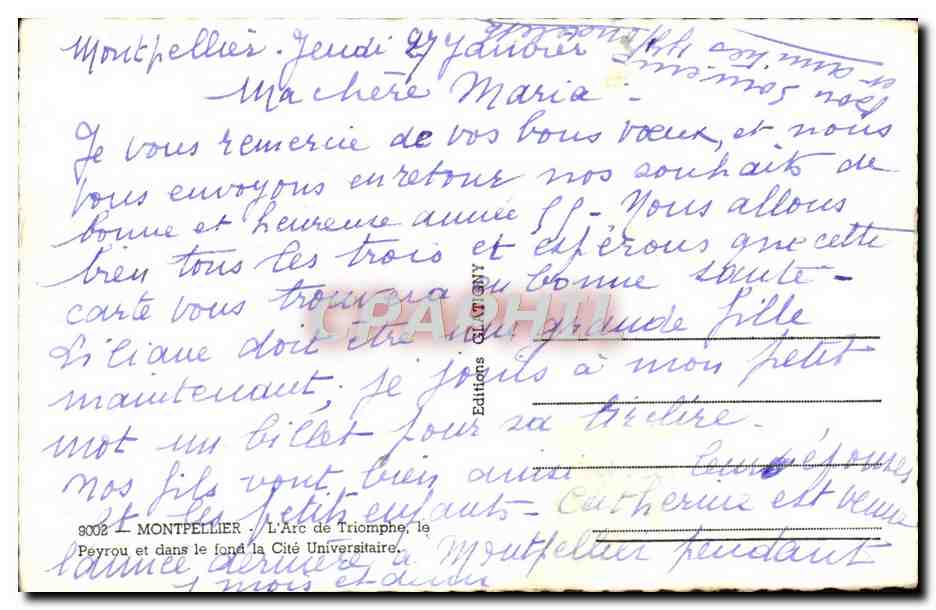 Montpellier. Jeudi 27 Janvier
Ma chère Maria -
Je vous remercie de vos bons vœux, et nous
vous envoyons en retour nos souhaits de
bonne et heureuse année 55 - Nous allons
bien tous les trois et espérons que cette
carte vous trouvera en bonne santé -
Liliane doit être une grande fille
maintenant, je joins à mon petit
mot un billet pour sa tirelire.
Nos fils vont bien ainsi leurs épouses
et les petits enfants - Catherine est venue
l'année dernière à Montpellier pendant
1 mois et demi
bon souvenir
et amitiés
9002 — MONTPELLIER - L'Arc de Triomphe, le
Peyrou et dans le fond la Cité Universitaire.
Editions GLATIGNY
CPAPHIL